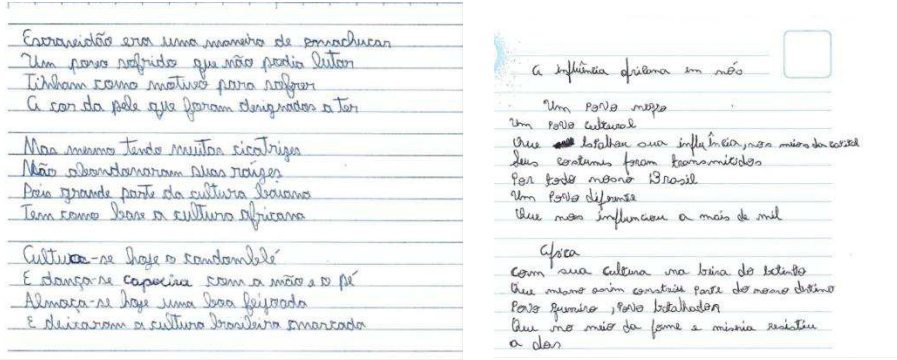 Escraveidão era uma maneira de emachucar
Um povo sofrido que não podia lutar
Tinham como motivo para sofrer
A cor da pele que foram designados a ter
Mas mesmo tendo muitas cicatrizes
Não abandonaram suas raízes
Pois grande parte da cultura baiana
Tem como base a cultura africana
Cultua-se hoje o candomblé
E dança-se capoeira com a mão e o pé
Almoça-se hoje uma boa feijoada
E deixaram a cultura brasileira marcada
A influência africana em nós
Um povo negro
Um povo cultural
Que espalhou sua influência, nos meios da capital
Seus costumes foram transmitidos
Por todo nosso Brasil
Um povo diferente
Que nos influenciou a mais de mil
África
Com sua cultura na beira do
Que mesmo assim construiu parte do nosso destino
Povo guerreiro, povo batalhador
Que no meio da fome e miséria resistiu
a dor